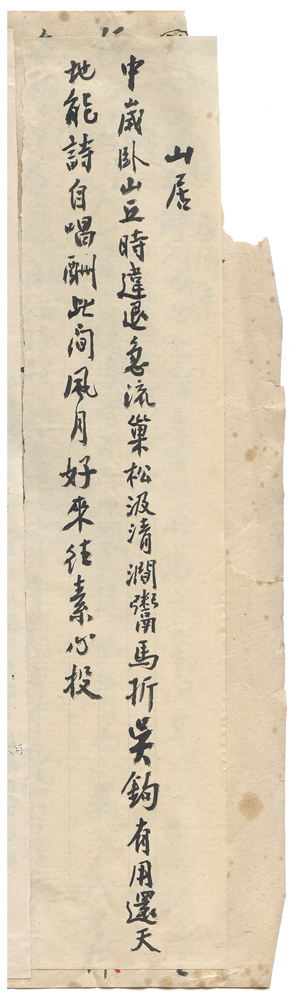 山居
中歲卧山丘時違退急流巢松汲清澗鬻馬折吴鉤有用還天
地能詩自唱酬此間風月好來往素心投